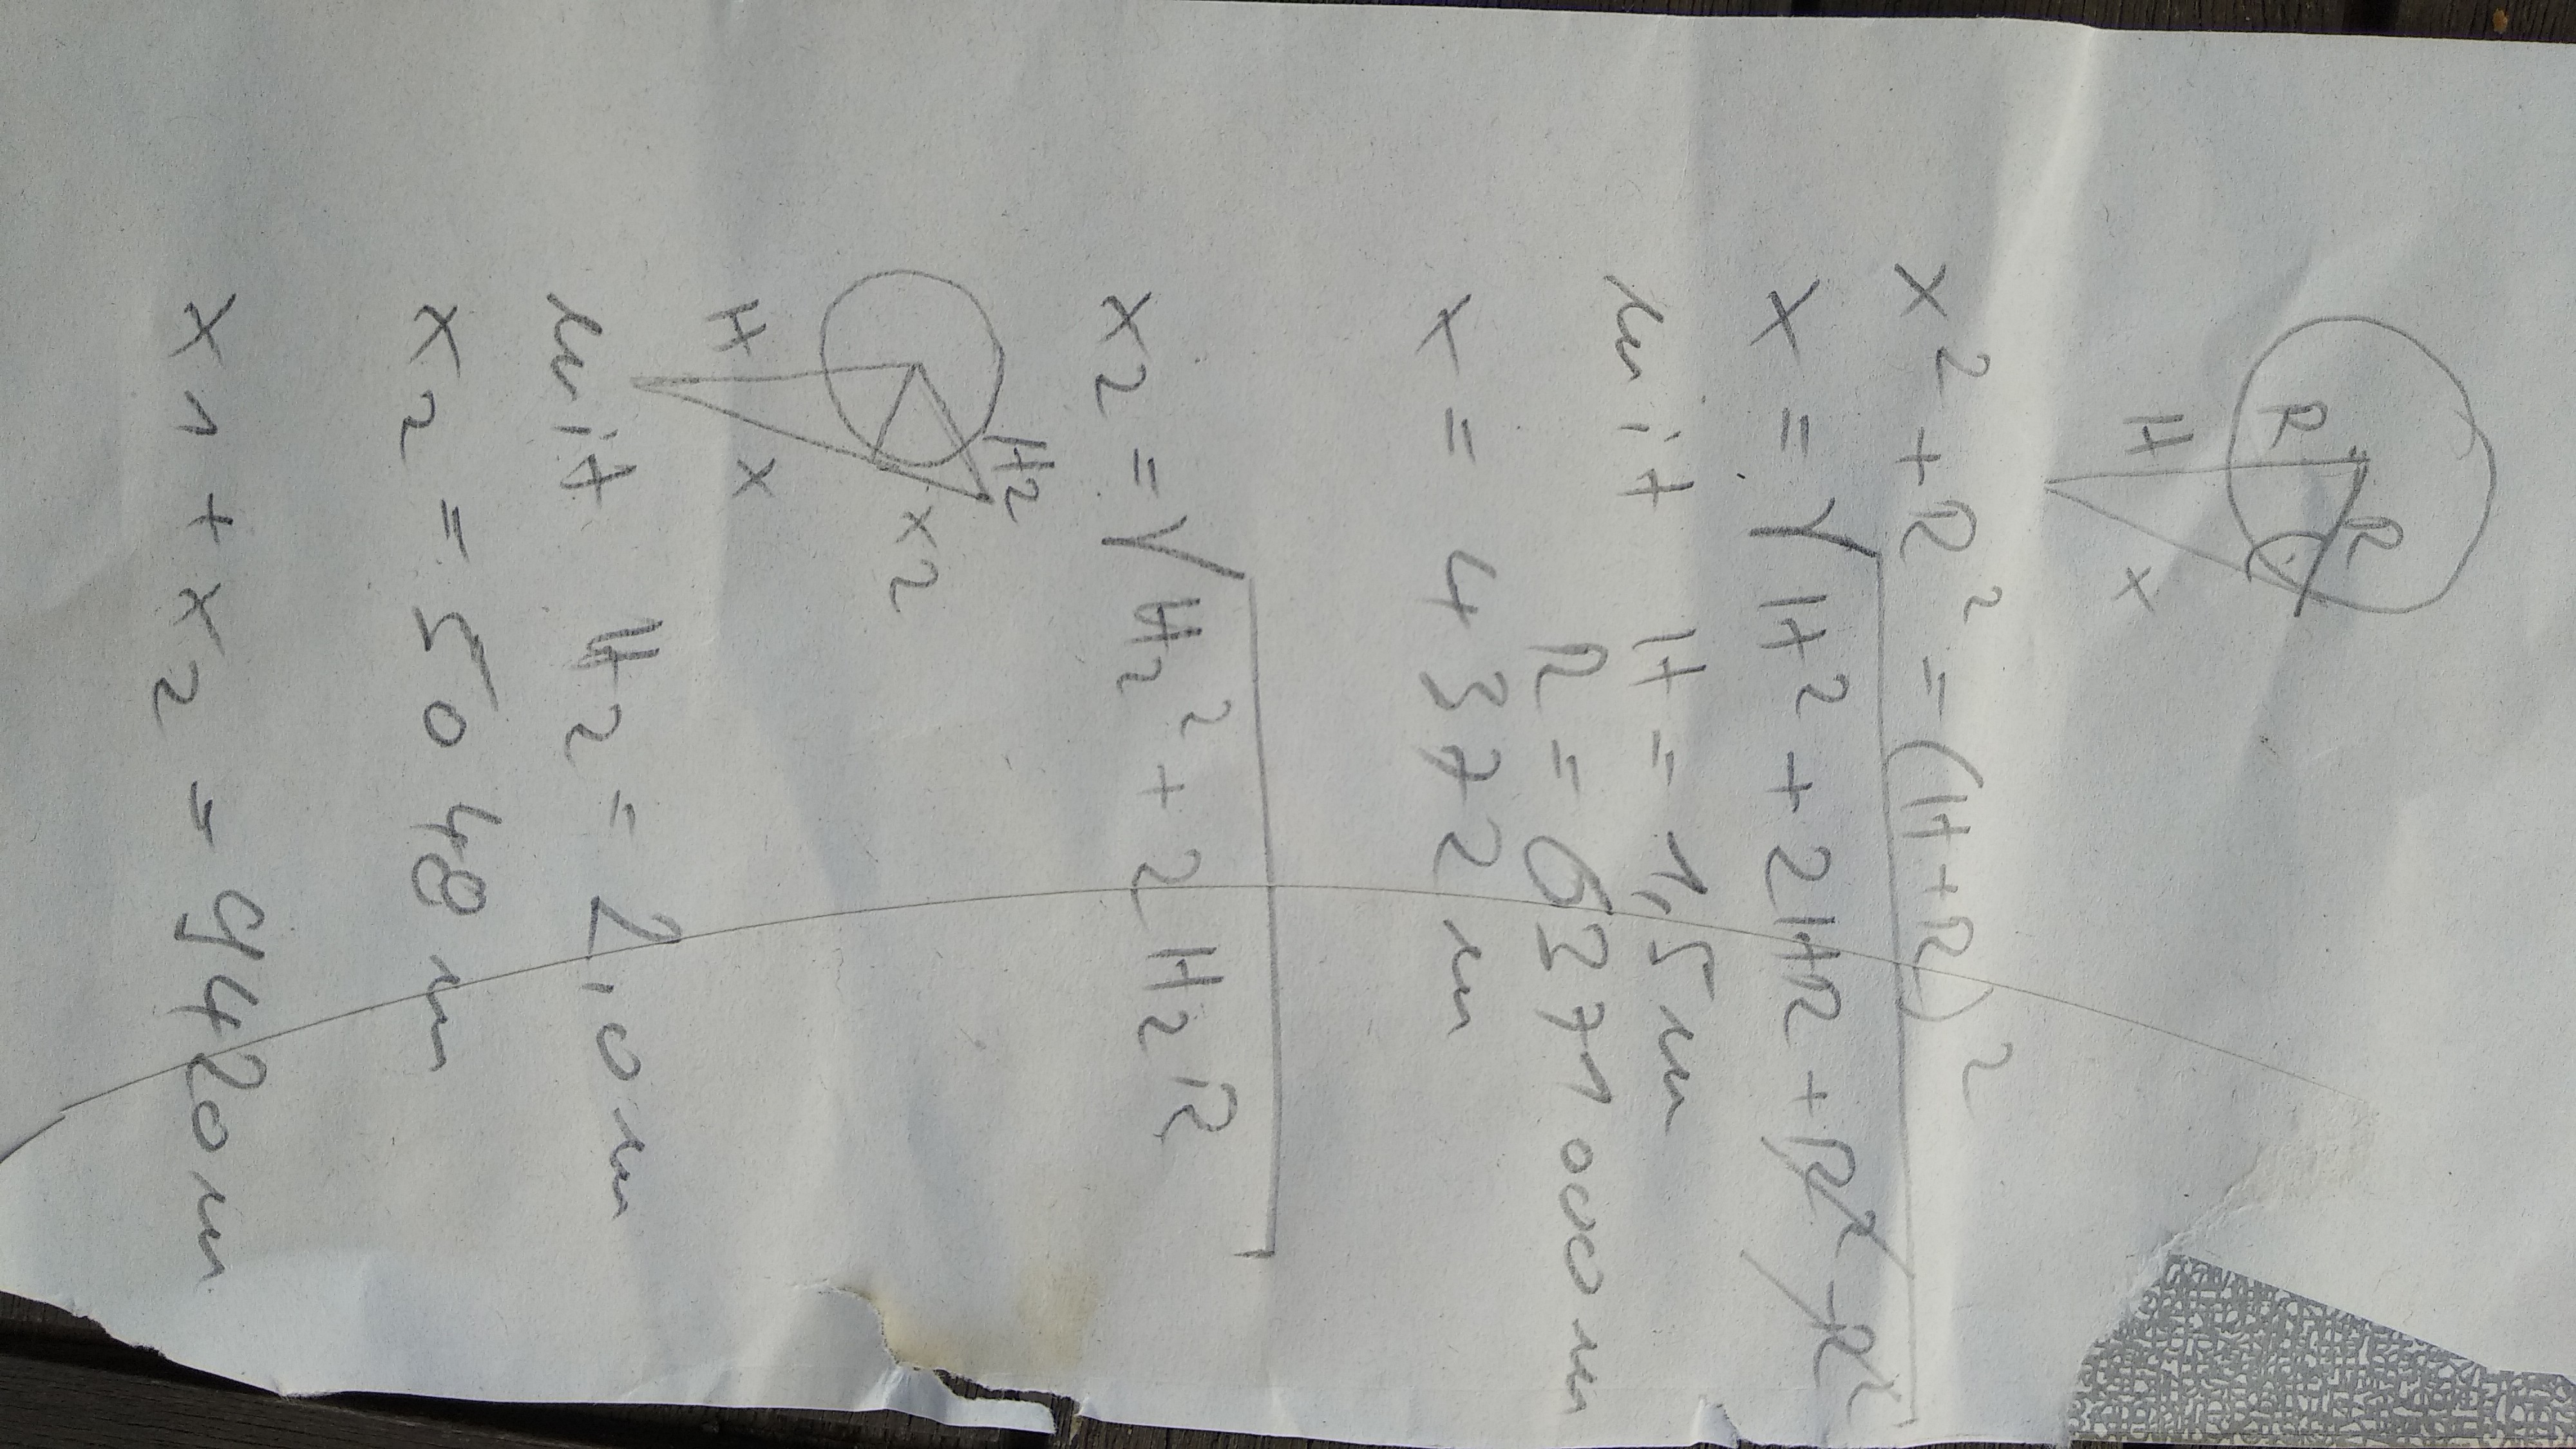 R
R
H
x
x² + R² = (H+R)²
x = √H² + 2HR + R² - R²
mit H = 1,5 m
R = 6371000 m
x = 4372 m
x2 = √H2² + 2H2R
H2
H
x
x2
mit H2 = 2,0 m
x2 = 5048 m
x1 + x2 = 9420 m